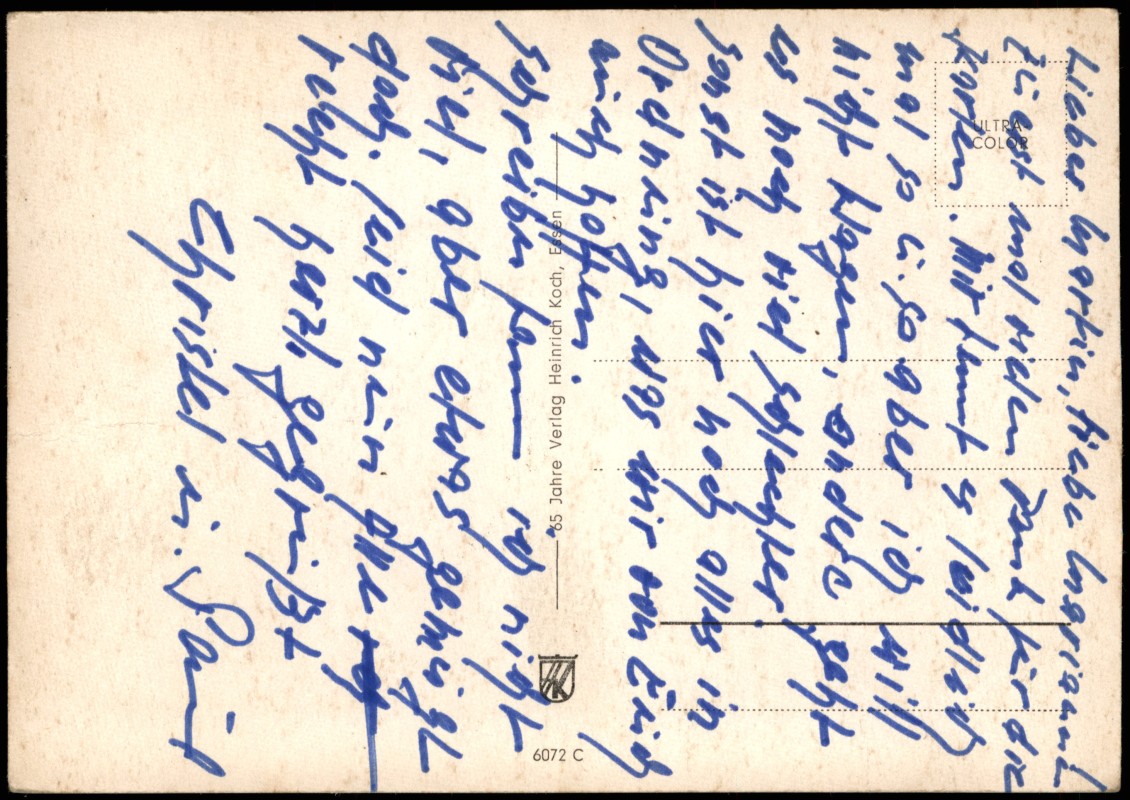 Lieber Martin, liebe Marianne!
Zuerst mal vielen Dank für die
Karten. Mir kommt es leidlich
mal so u. so aber ich will
nicht klagen, andere geht
es noch viel schlechter.
Sonst ist hier noch alles in
Ordnung, was wir von Euch
auch hoffen.
Schreiben kann ich nicht
viel, aber etwas genügt
auch. Seid nun alle
recht herzl. gegrüßt
Christel u.
ULTRA
COLOR
65 Jahre Verlag Heinrich Koch, Essen
6072 C